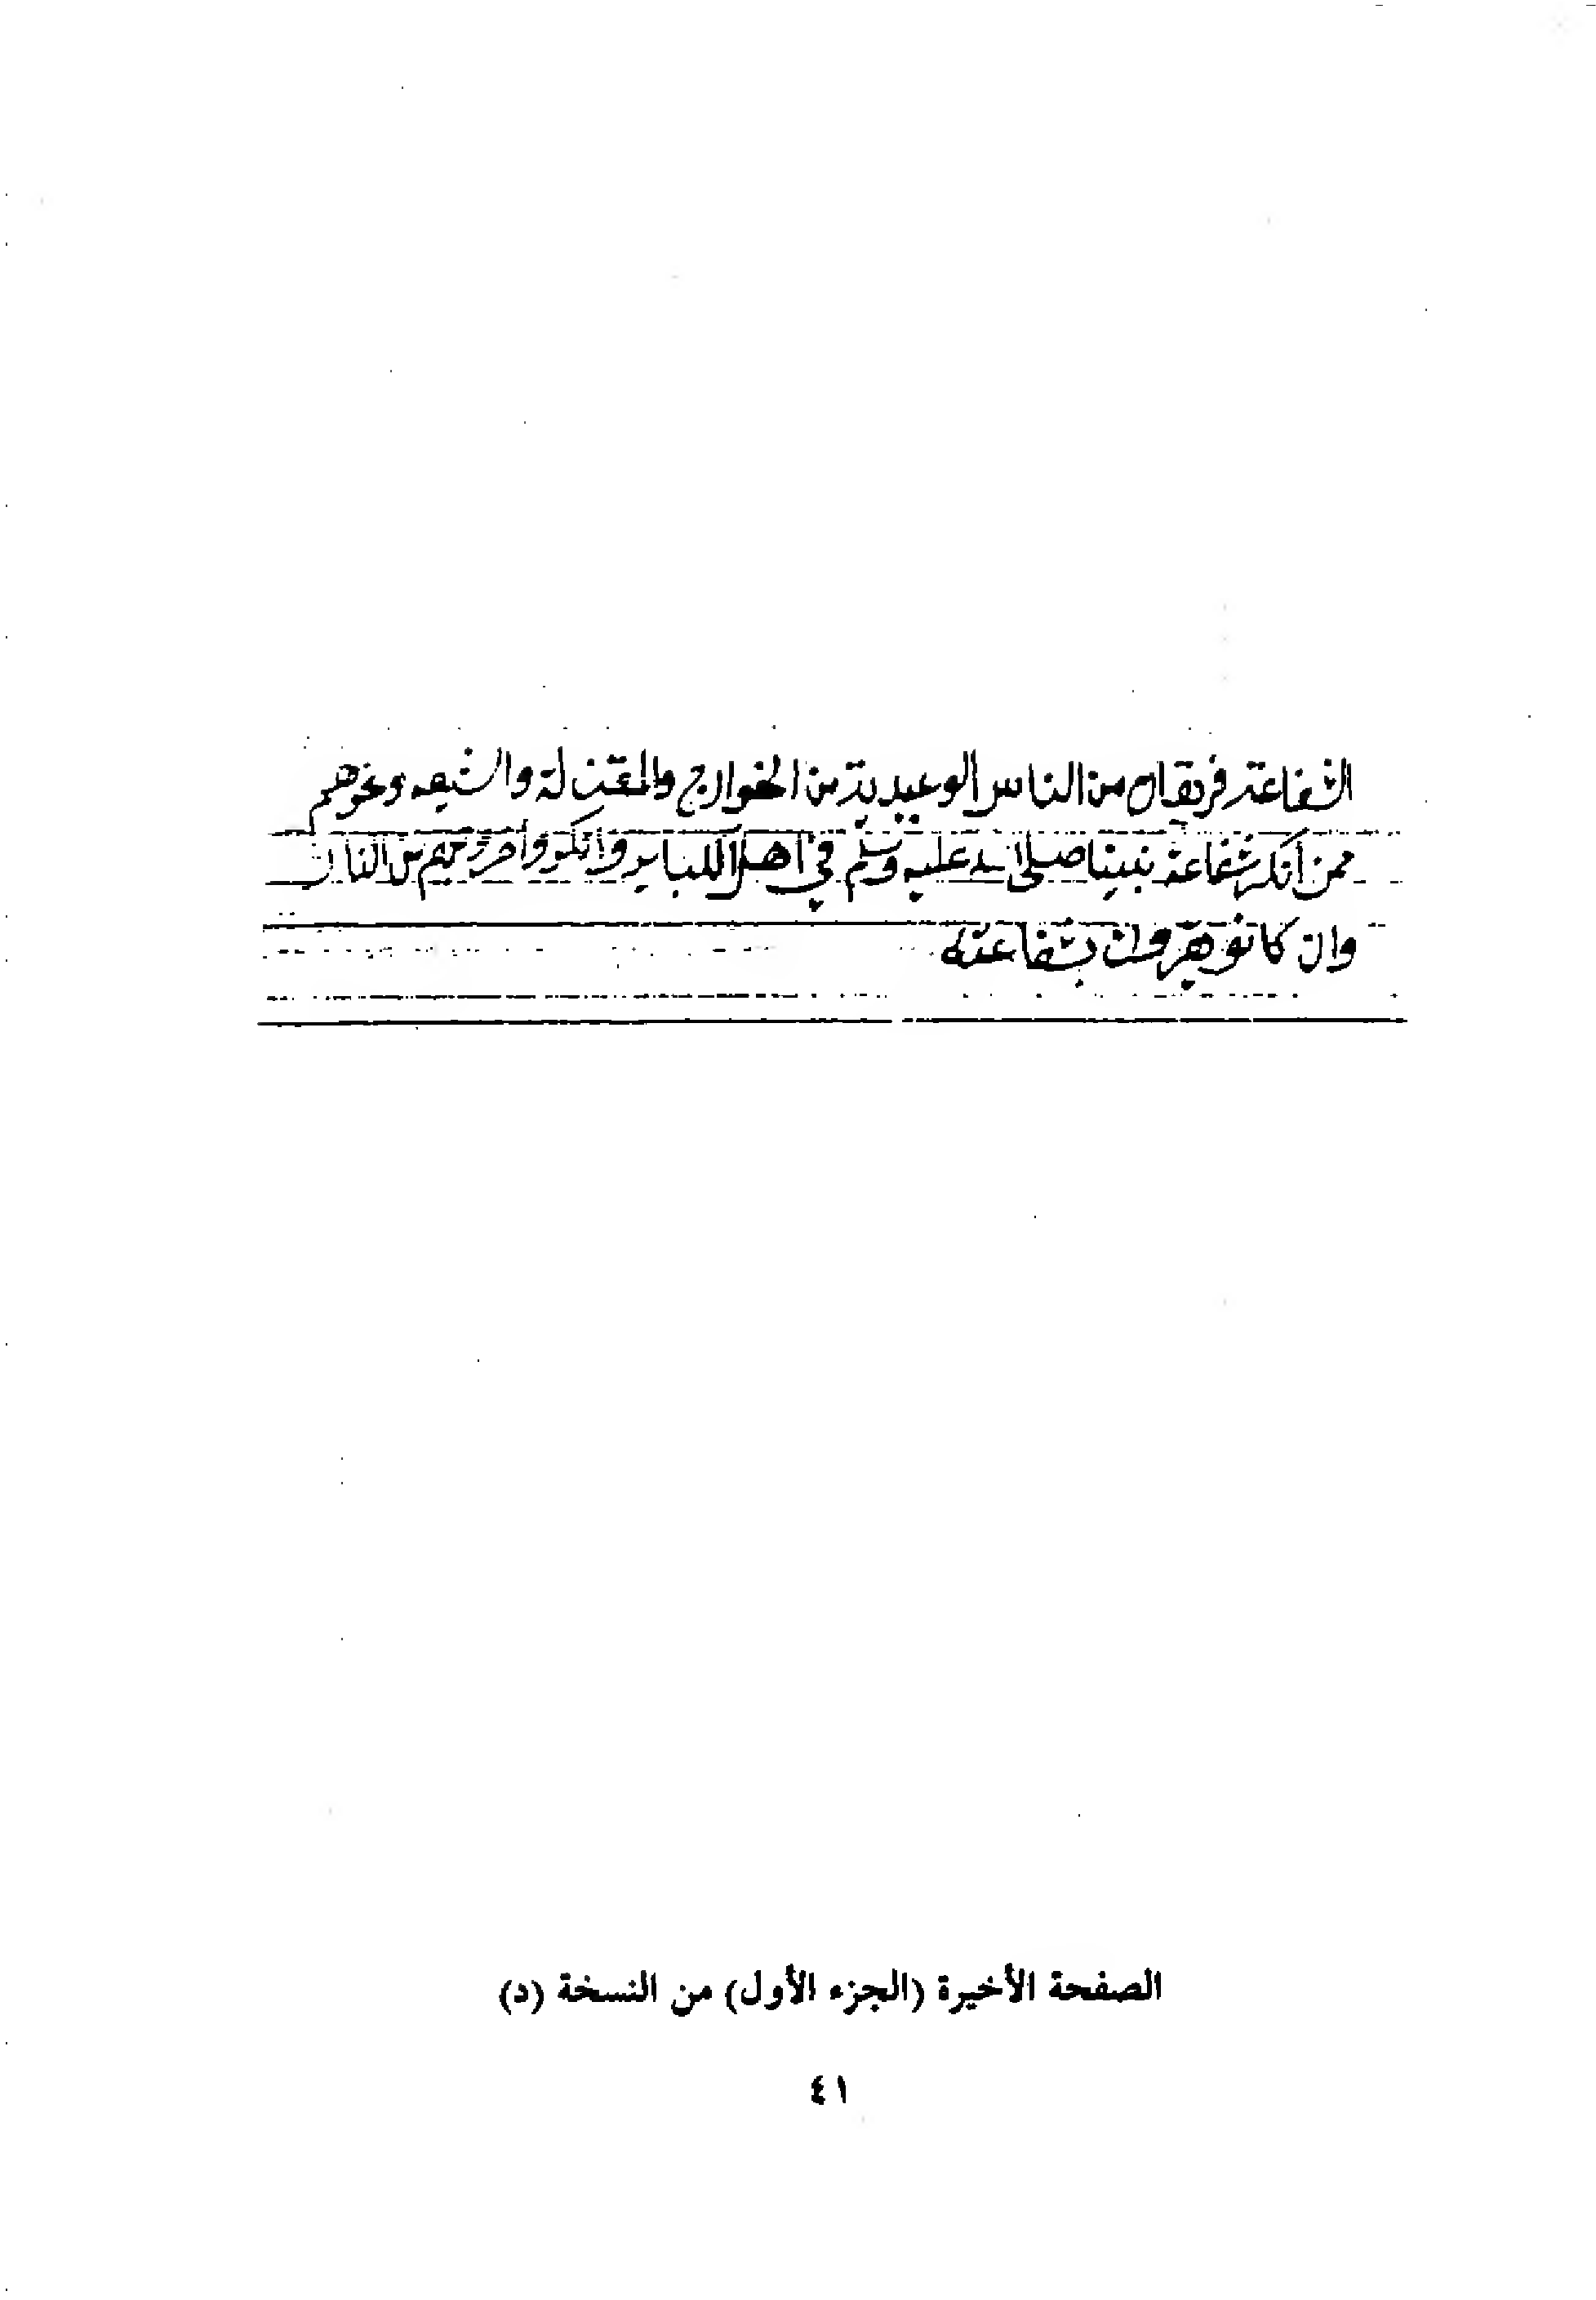 الشفاعة فريقان من الناس الوعيدية من الخوارج والمعتزلة والشيعه ونحوهم
ممن أنكر شفاعة نبينا صلى الله عليه وسلم في أهل الكباير وانكروا خروجهم من النار
وان كانو يقرون بشفاعته
الصفحة الأخيرة (الجزء الأول) من النسخة (د)
٤١